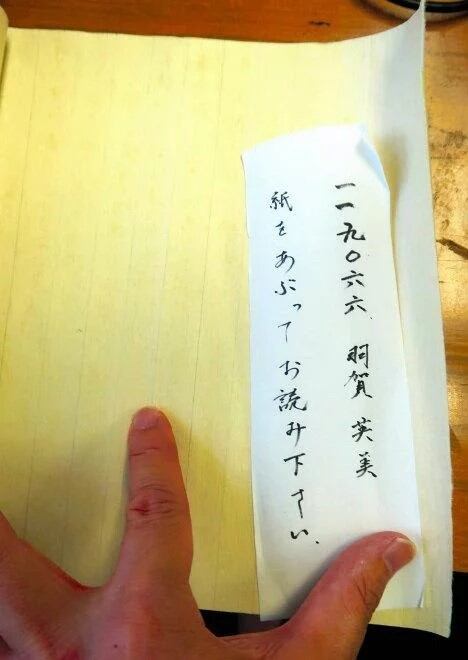 一一九〇六六 羽賀 英美
紙をあぶってお読み下さい。